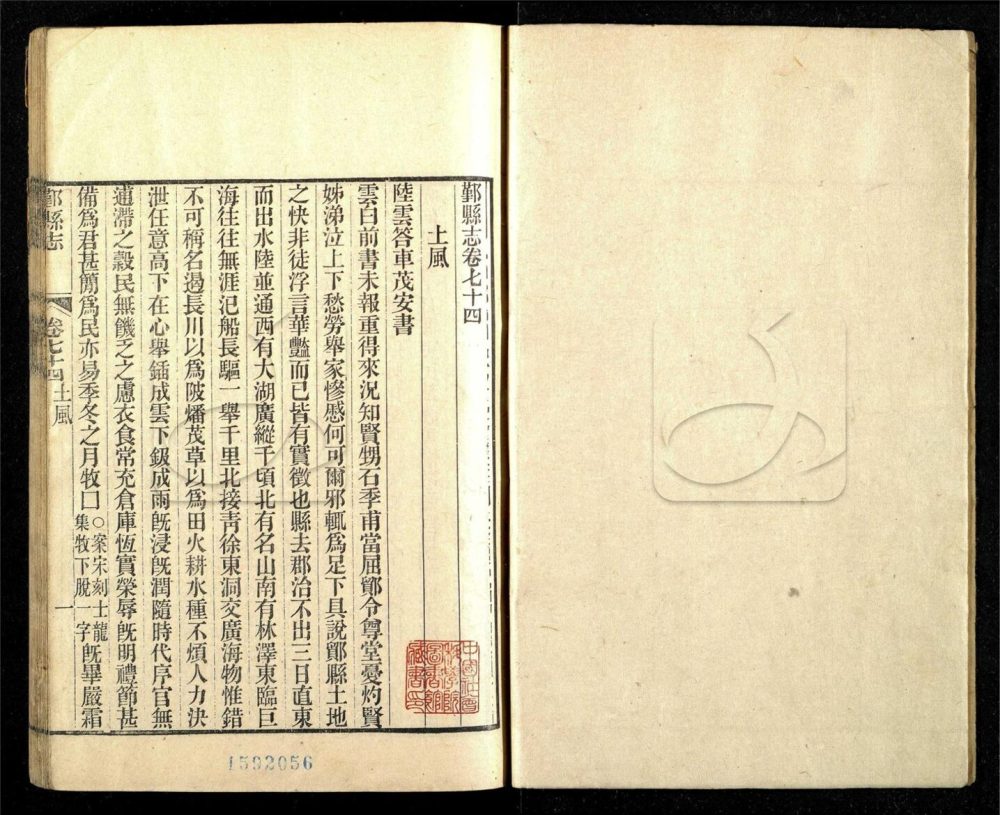 鄞縣志卷七十四
土風
陸雲答車茂安書
雲白前書未報重得來況知賢甥石季甫當屈鄮令尊堂憂灼賢
姊涕泣上下愁勞舉家慘慼何可爾邪輒爲足下具說鄮縣土地
之快非徒浮言華豔而已皆有實徵也縣去郡治不出三日直東
而出水陸並通西有大湖廣縱千頃北有名山南有林澤東臨巨
海往往無涯汜船長驅一舉千里北接青徐東洞交廣海物惟錯
不可稱名遏長川以爲陂燔茂草以爲田火耕水種不煩人力決
泄任意高下在心舉鍤成雲下鈒成雨旣浸旣潤隨時代序官無
逋滯之穀民無饑乏之慮衣食常充倉庫恆實榮辱旣明禮節甚
備爲君甚簡爲民亦易季冬之月牧口○案宋刻士龍集牧下脫一字旣畢嚴霜
鄞縣志 卷七十四 土風 一
中國科學院圖書館藏書印
1592056